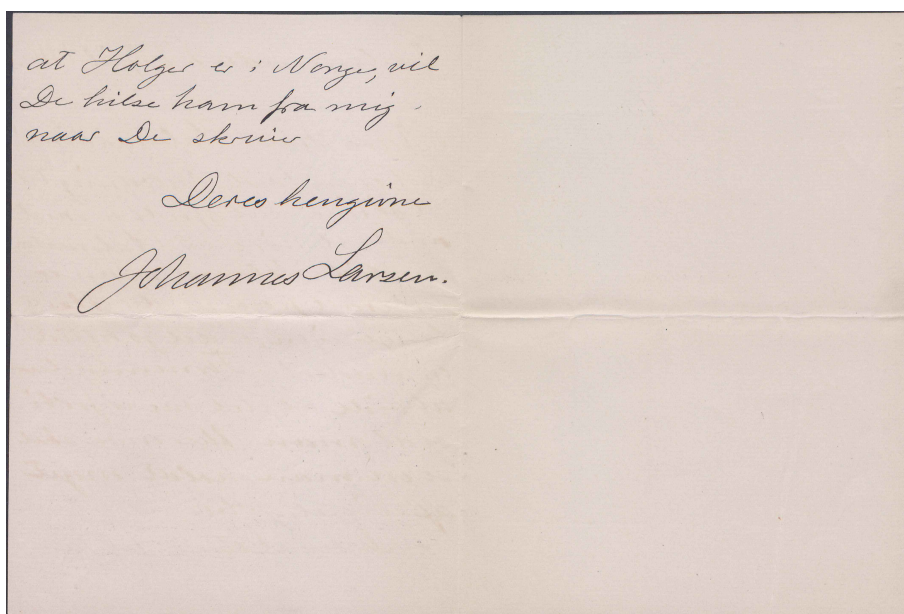 at Holger er i Norge, vil
De hilse ham fra mig.
naar De skriver
Deres hengivne
Johannes Larsen.